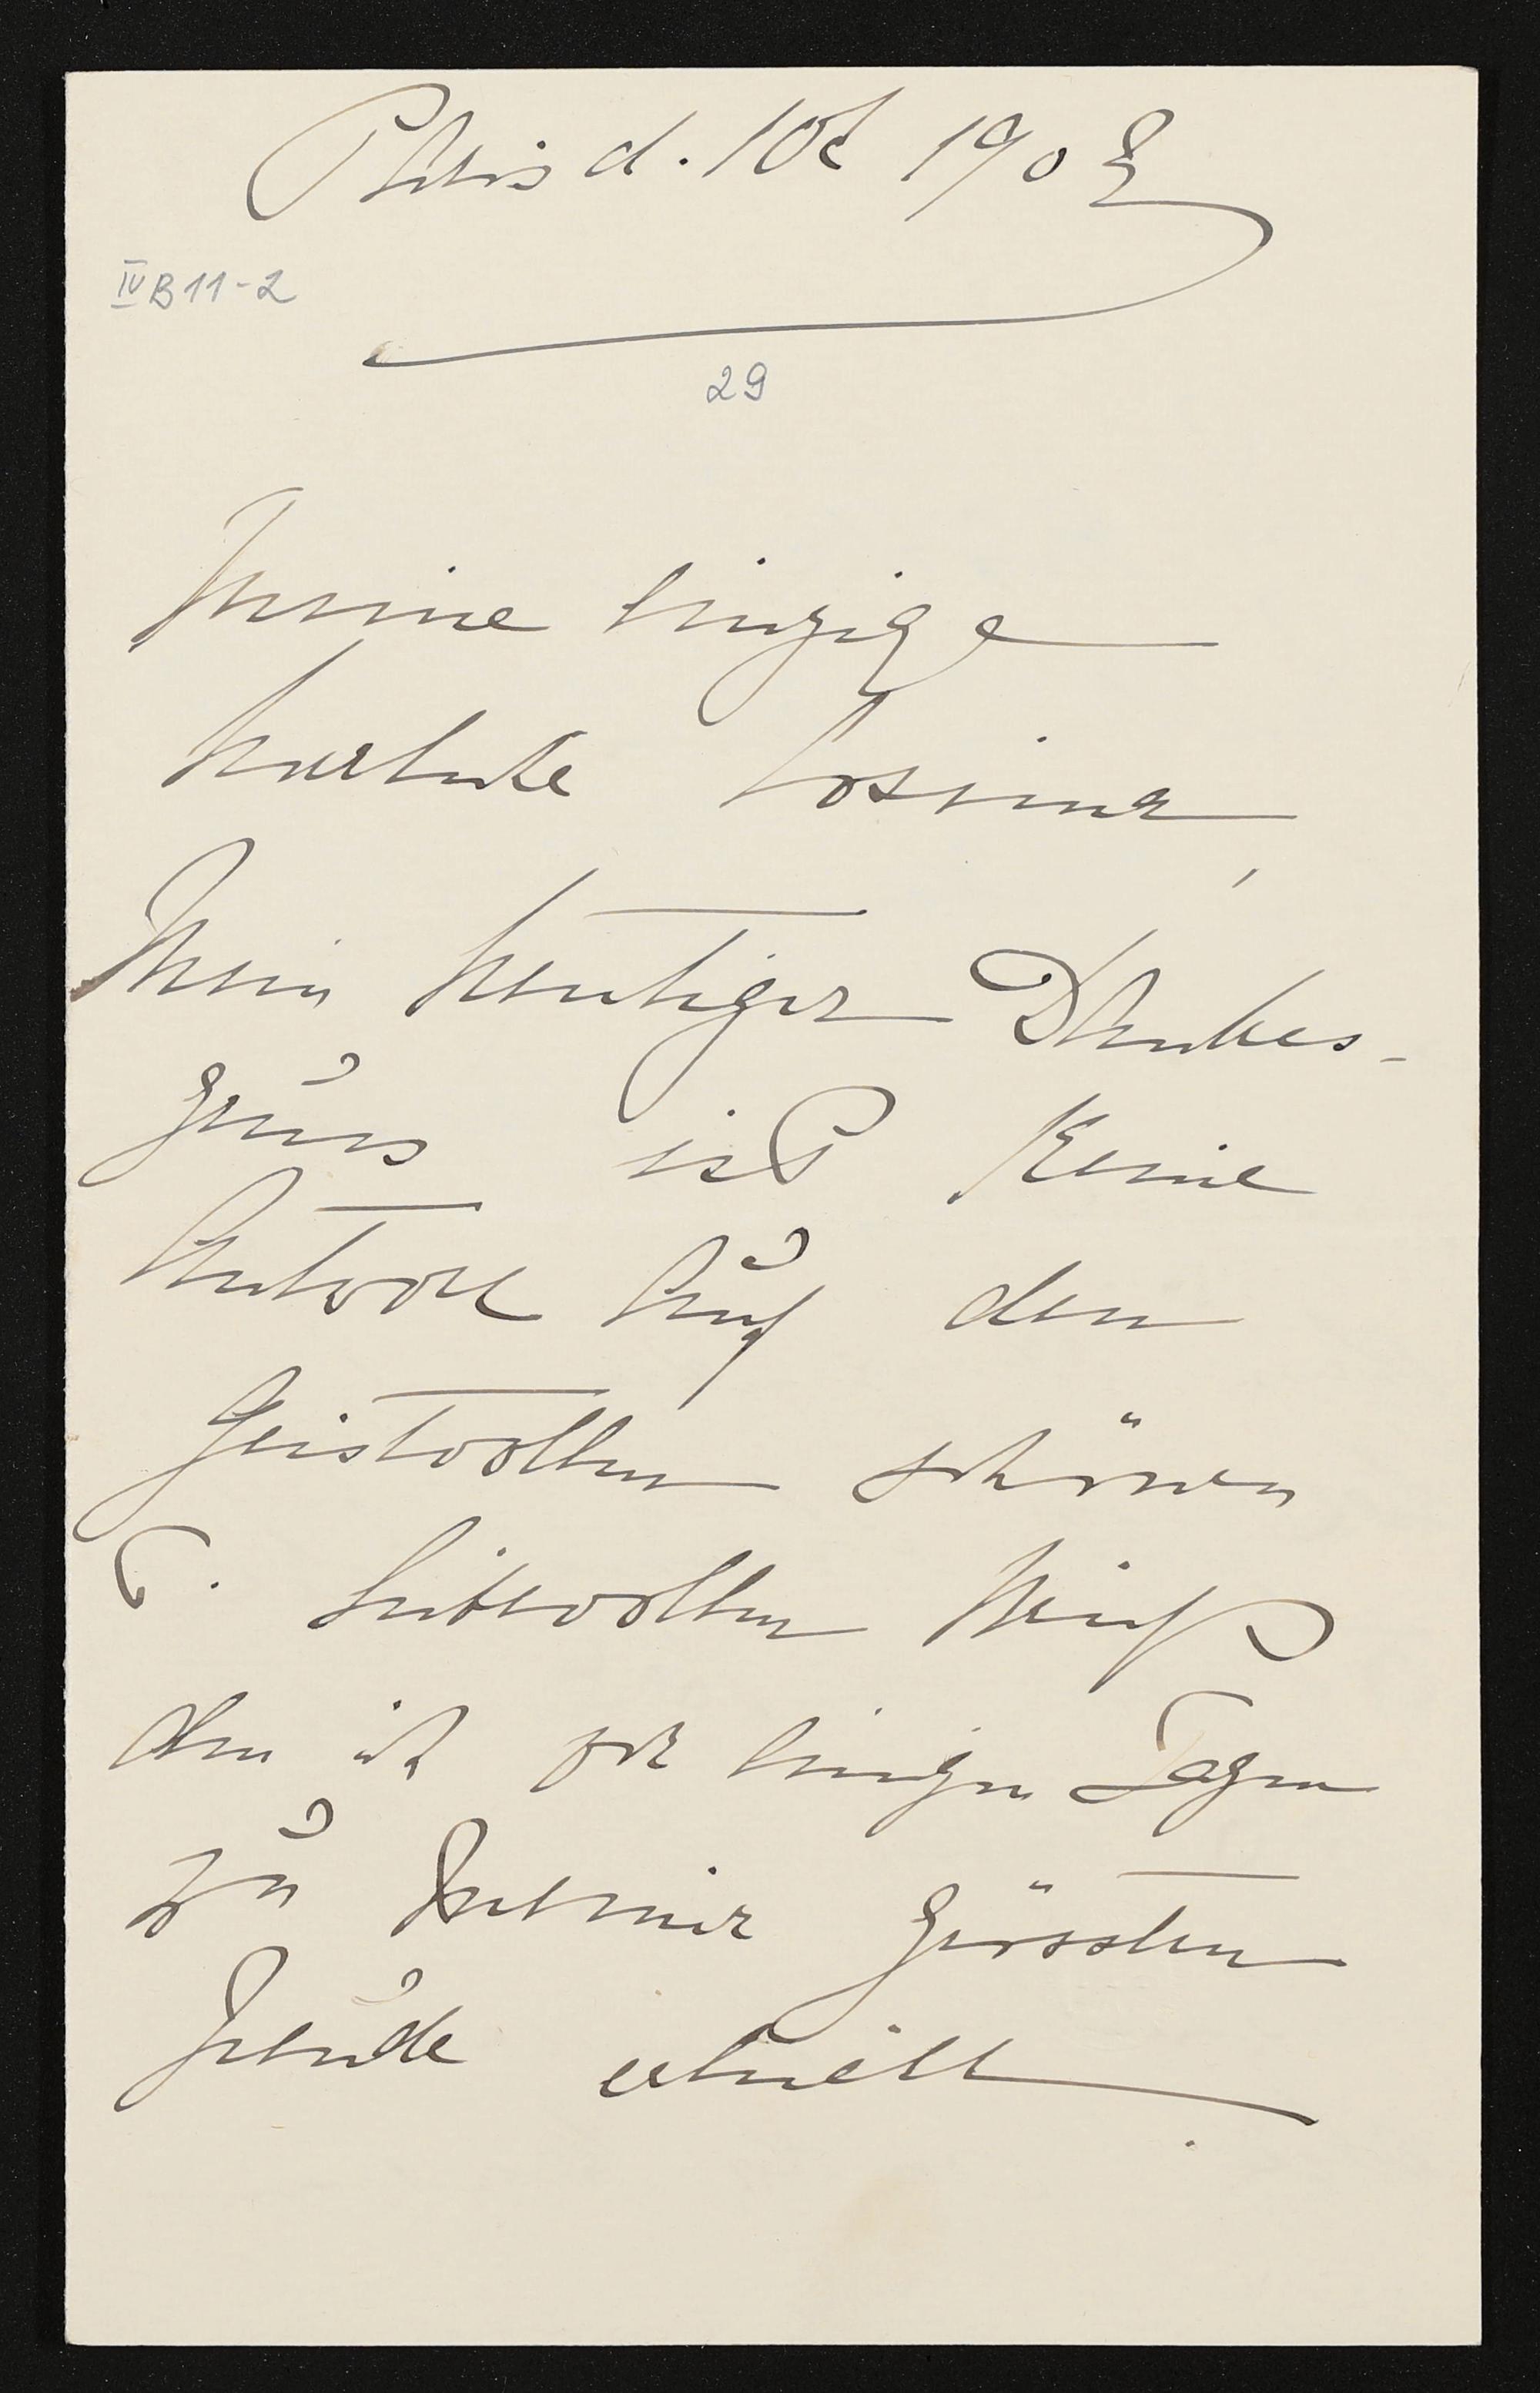 Paris d. 10t 1903
IV B 11-2
29
Meine einzige
verehrte Cosima,
Mein heutiger Dankes-
gruss ist keine
Antwort auf den
geistvollen schönen
u. liebevollen Brief
den ich vor einigen Tagen
zu meiner grössten
Freude erhielt.